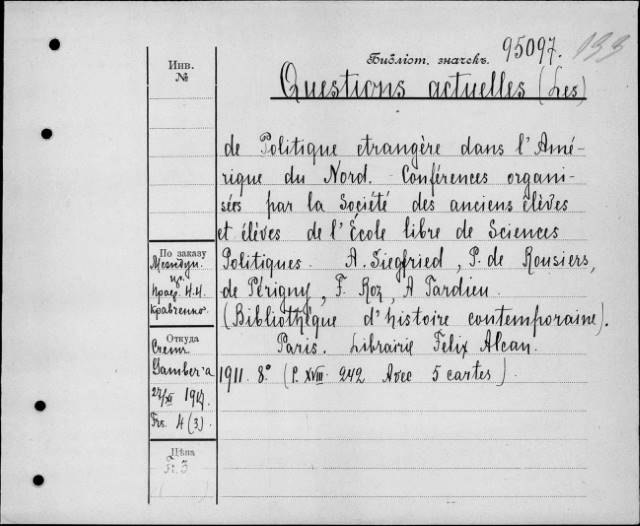 95097. 133
Библіот. значекъ.
Инв.
№
Questions actuelles (Les)
de Politique etrangère dans l'Amé-
rique du Nord. Conférences organi-
sées par la Société des anciens élèves
et élèves de l'École libre de Sciences
Politiques. A. Siegfried, P. de Rousiers,
de Périgny, F. Roz, A Tardieu.
(Bibliothèque d'histoire contemporaine).
Paris. Librairie Felix Alcan.
1911. 8° (P. XVIII. 242 Avec 5 cartes)
По заказу
Н.Н.
Кравченко
Откуда
1917
Frs. 4 (3).
Цѣна
Fr. 3
( )